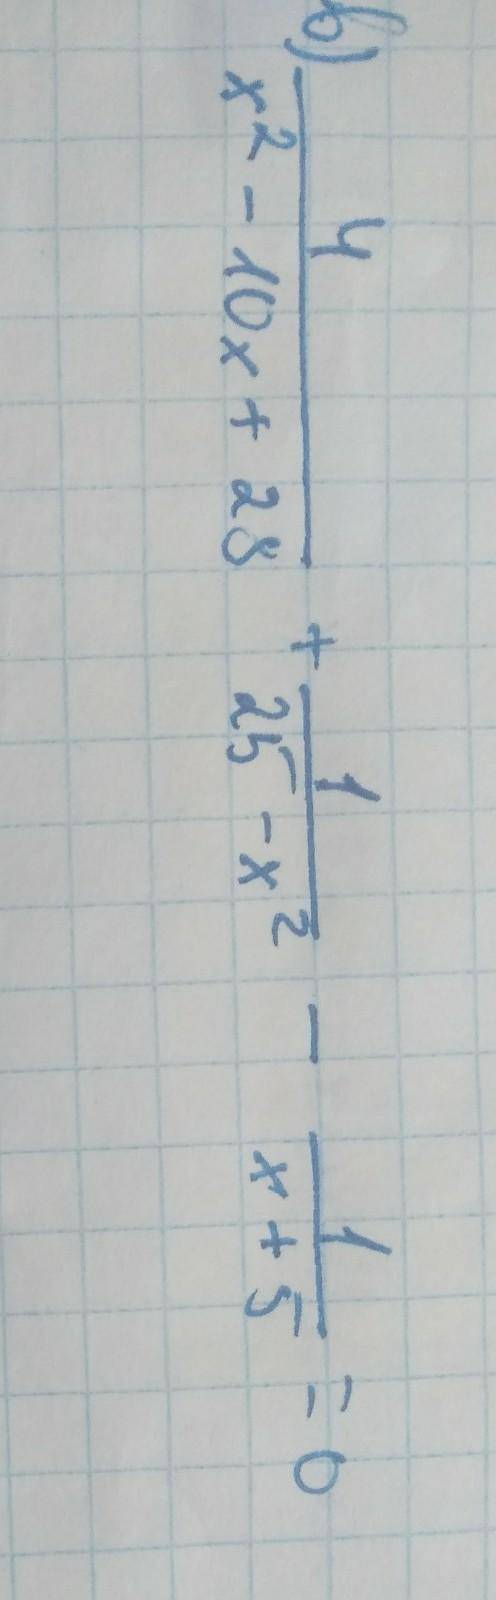 b) 4/(x² - 10x + 28) + 1/(25 - x²) - 1/(x + 5) = 0